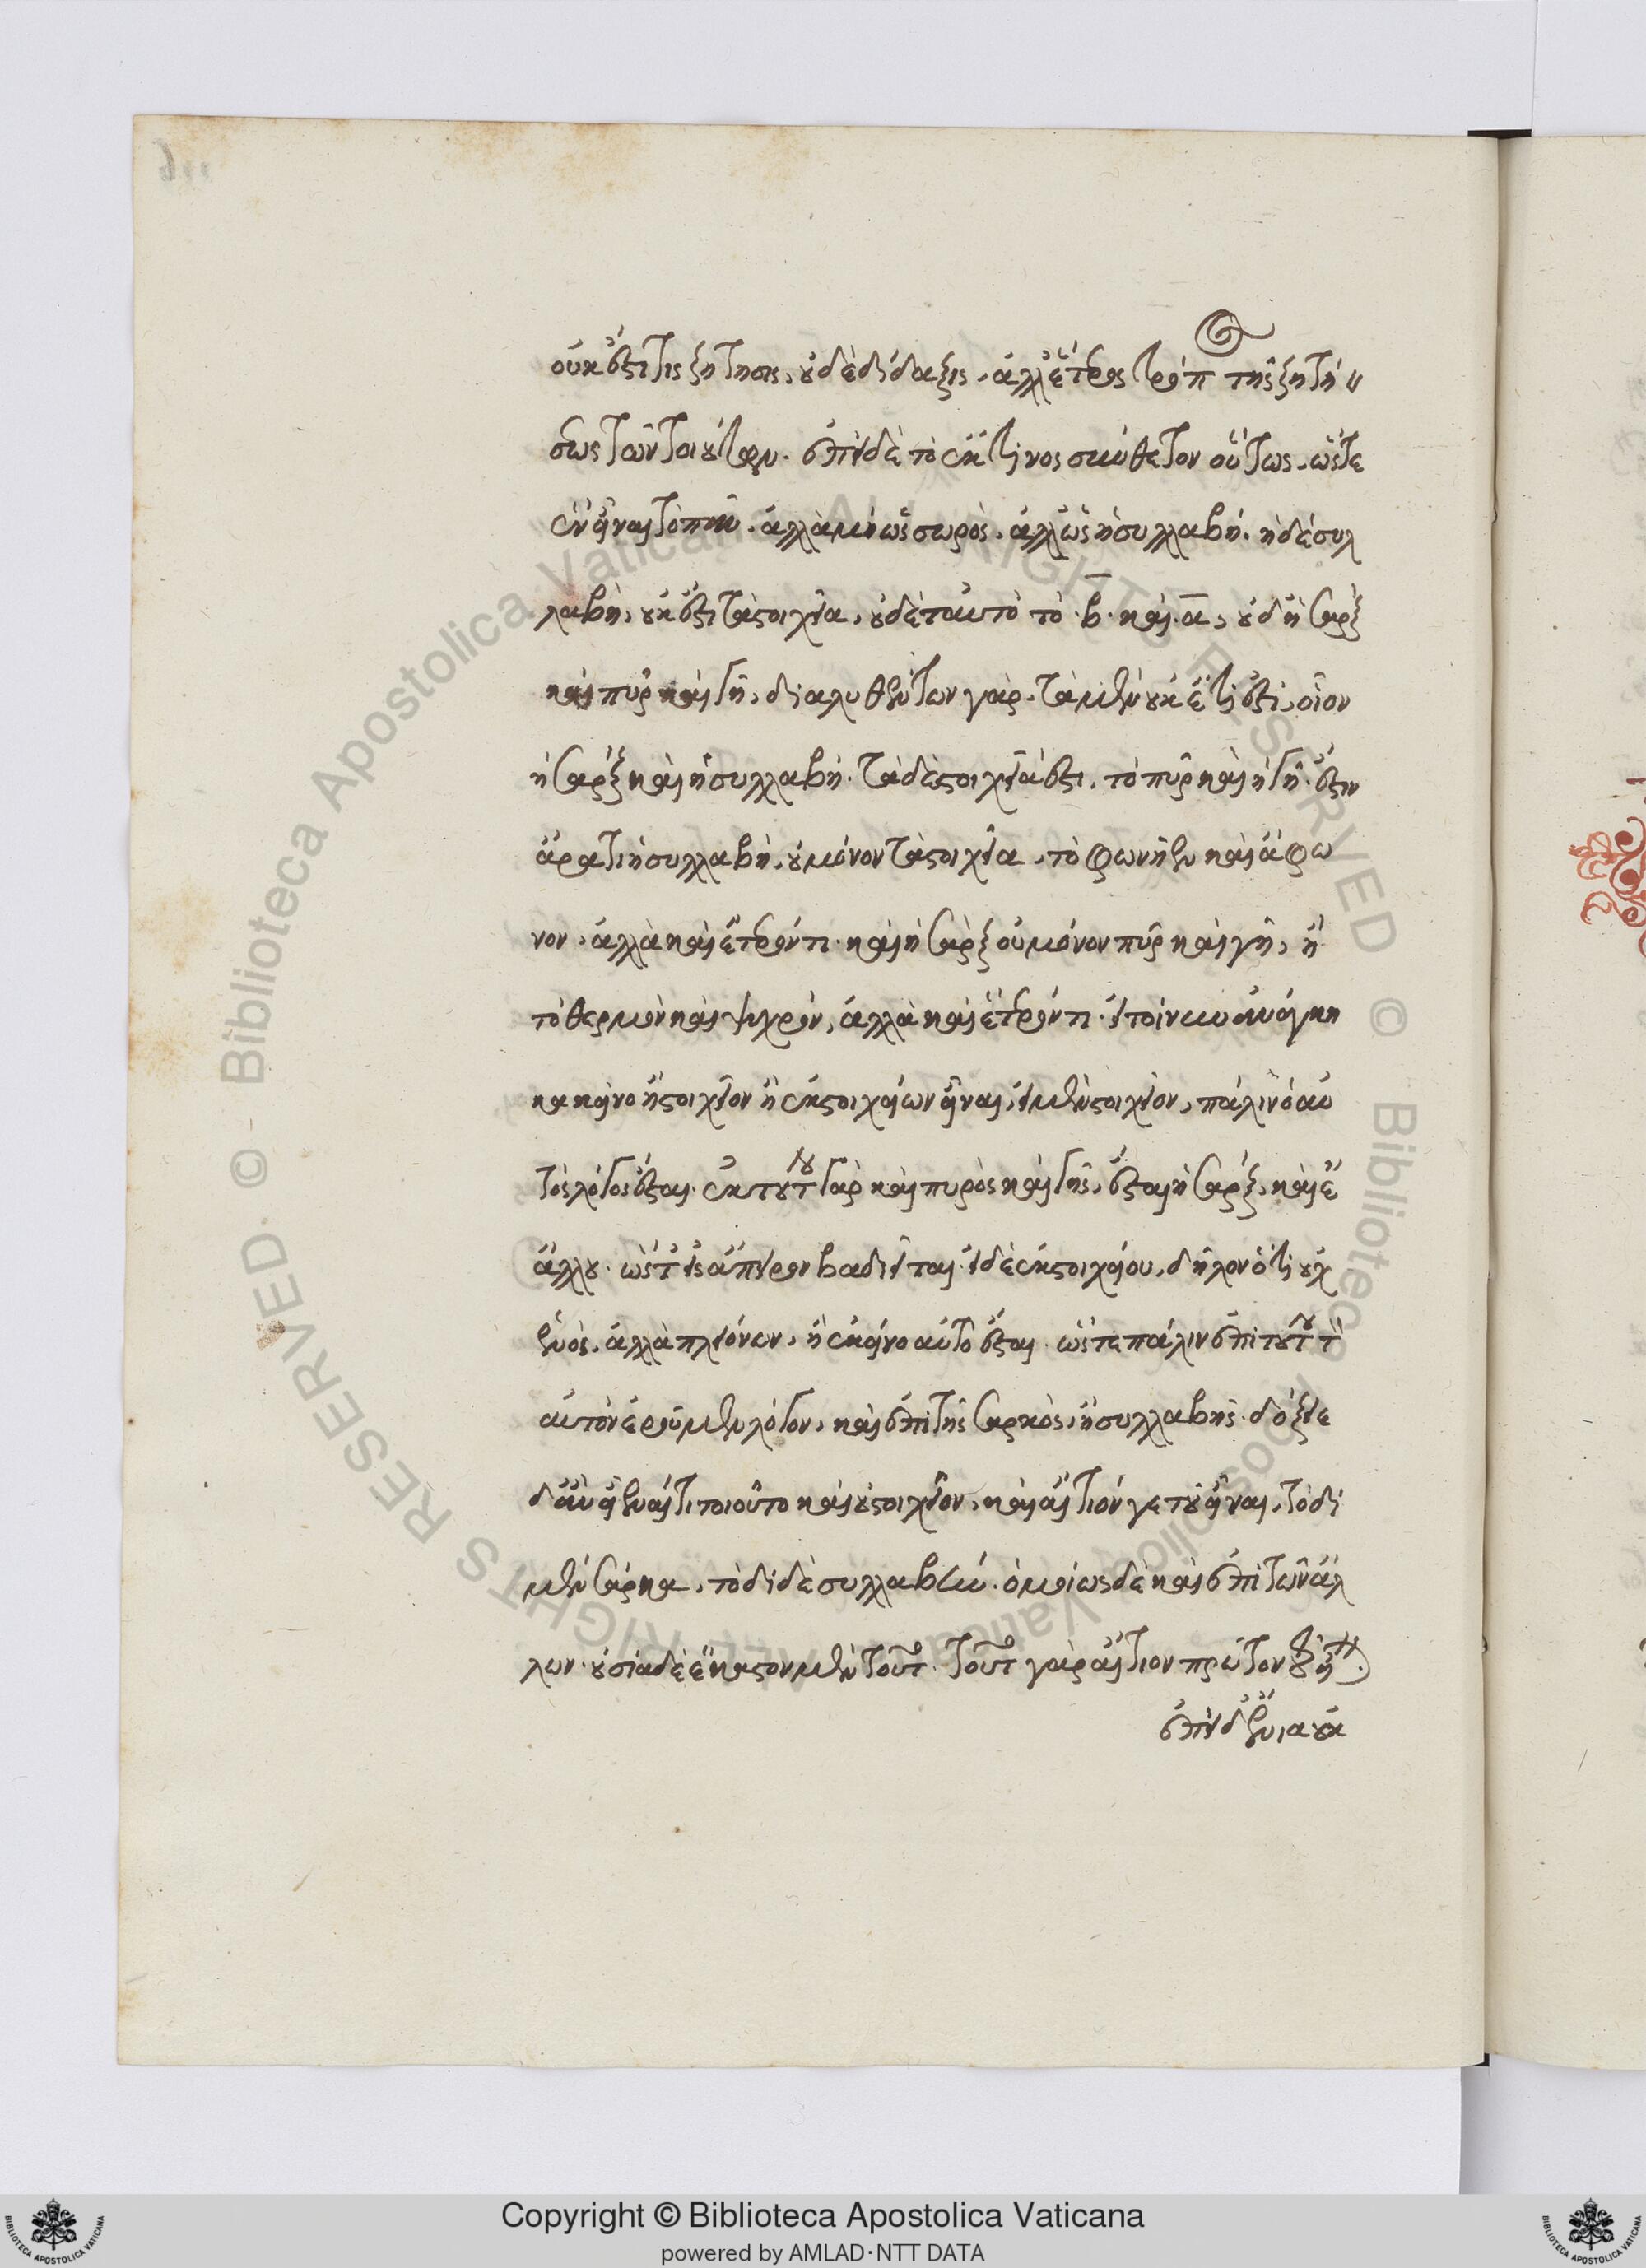 οὐκ ἔστι τις ζήτησις, οὐδὲ δίδαξις, ἀλλ' ἕτερος τρόπος τῆς ζητή
σεως τῶν τοιούτων. ἐπεὶ δὲ τὸ ἔκ τινος σύνθετον οὕτως, ὥστε
ἓν εἶναι τὸ πᾶν. ἀλλὰ μὴ ὡς σωρὸς. ἀλλ' ὡς ἡ συλλαβή. ἡ δὲ συλ
λαβὴ, οὐκ ἔστι τὰ στοιχεῖα, οὐδὲ ταὐτὸ τὸ β καὶ α, οὐδ' ἡ σὰρξ
καὶ πῦρ καὶ γῆ, διαλυθέντων γὰρ, τὰ μὲν οὐκ έτι ἐστὶ, οἷον
ἡ σὰρξ καὶ ἡ συλλαβή. τὰ δὲ στοιχεῖά ἐστι, τὸ πῦρ καὶ ἡ γῆ. ἔστιν
ἄρα τὶ ἡ συλλαβὴ, οὐ μόνον τὰ στοιχεῖα, τὸ φωνῆεν καὶ ἄφω
νον, ἀλλὰ καὶ ἕτερόν τι. καὶ ἡ σὰρξ οὐ μόνον πῦρ καὶ γῆ, ἢ
τὸ θερμὸν καὶ ψυχρόν, ἀλλὰ καὶ ἕτερόν τι. εἰ τοίνυν ἀνάγκη
κακεῖνο ἢ στοιχεῖον ἢ ἐκ στοιχείων εἶναι, εἰ μὲν στοιχεῖον, πάλιν ὁ αὐ
τὸς λόγος ἔσται. ἐκ τούτου γὰρ καὶ πυρὸς καὶ γῆς, ἔσται ἡ σὰρξ, καὶ ἔ
ἄλλου. ὥστ' εἰς ἄπειρον βαδιεῖται. εἰ δὲ ἐκ στοιχείου, δῆλον ὅτι οὐχ
ἑνὸς, ἀλλὰ πλειόνων, ἢ ἐκεῖνο αὐτὸ ἔσται. ὥστε πάλιν ἐπὶ τούτου τ
αὐτὸν ἐροῦμεν λόγον, καὶ ἐπὶ τῆς σαρκὸς, ἢ συλλαβῆς. δόξειε
δ' ἂν εἶναί τι τοιοῦτο καὶ οὐ στοιχεῖον, καὶ αἴτιόν γε τοῦ εἶναι, τοδὶ
μὲν σάρκα, τοδὶ δὲ συλλαβήν. ὁμοίως δὲ καὶ ἐπὶ τῶν ἄλ
λων. οὐσία δὲ ἕκαστον μὲν τοῦτο. τοῦτο γὰρ αἴτιον πρῶτον τοῦ εἶναι.
ἐπεὶ δ' ἔνια οὐκ